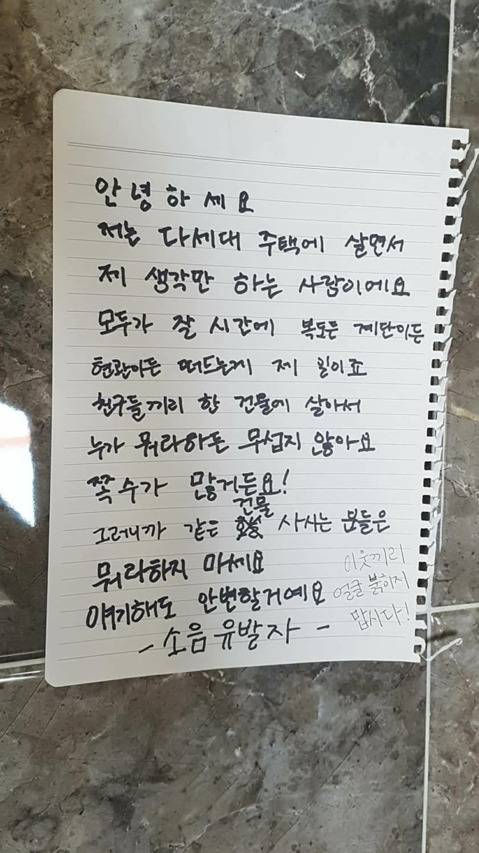 안녕하세요
저는 다세대 주택에 살면서
제 생각만 하는 사람이에요
모두가 잘 시간에 복도든 계단이든
현관이든 떠드는게 제 일이죠
친구들끼리 한 건물에 살아서
누가 뭐라하든 무섭지 않아요
쪽수가 많거든요!
그러니까 같은 건물 사시는 분들은
뭐라하지 마세요
얘기해도 안변할거예요
-소음유발자-
이웃끼리
얼굴 붉히지
맙시다!